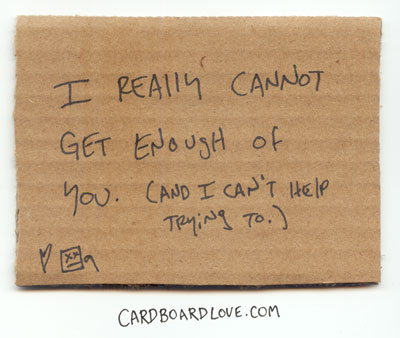 I REAlly CANNOT
GET ENOugH Of
you. (AND I CAN'T HElp
TRyiNg TO.)
CARDBOARDLOVE.COM